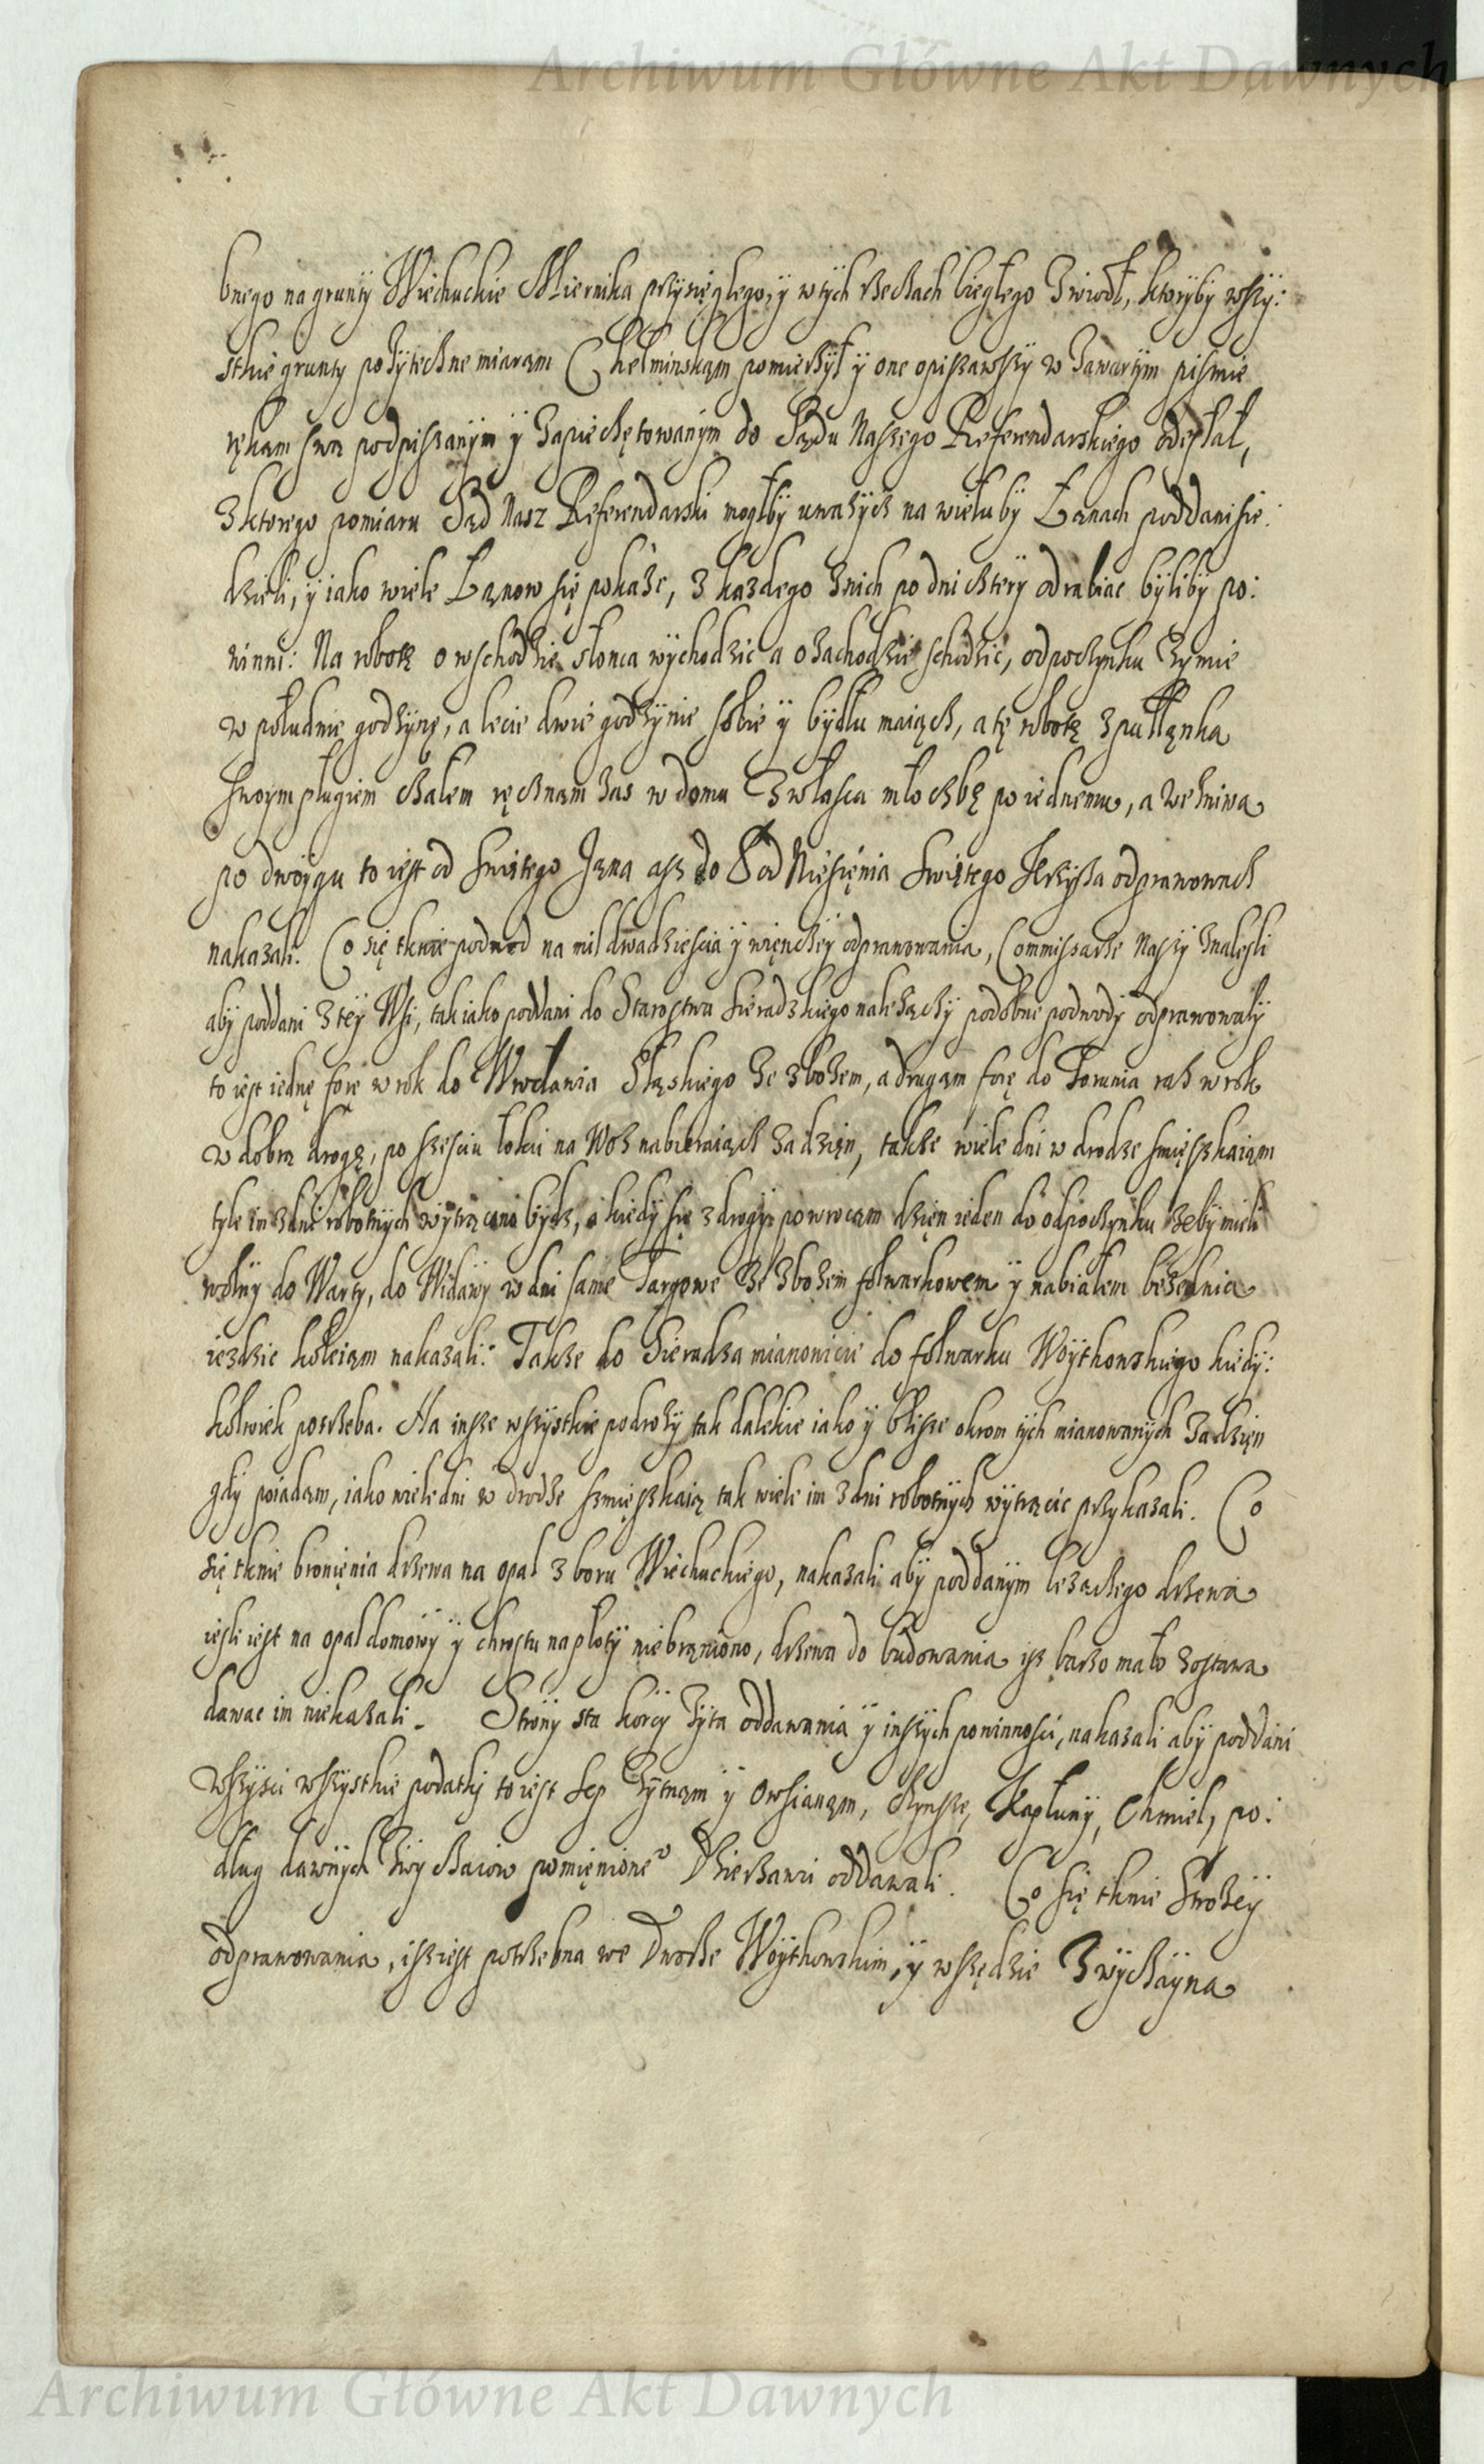 Archiwum Główne Akt Dawnych
bnego na grunty Wiechuckie Miernika przysięglego, y wtych rzeczach biegłego Zwiodł, ktoryby wszy:
stkie grunty pożyteczne miarąm Chełminskąm pomierzył y one opisawszy w Zawartym pismie
ręką swą podpiszanym y Zapieczętowanym do Sądu Naszego Referendarskiego odesłał,
Z ktorego pomiaru Sąd Nasz Referendarski mogłby uwazycz na wieluby Łanach poddani sie:
dzieli, y iako wiele Łąnow się pokaże, z kazdego znich po dni cztery odrabiac byliby po:
winni: Na robotę o wschodzie słonca wychodzic a o zachodzie schodzic, odpoczynku Zymie
w południe godzynę, a lecie dwie godzynie sobie y bydłu maiącz, a tę robotę z pułłąnka
swoym pługiem całem ręcznąm zas w domu Zwłasca młoczbę po iednemu, a we żniwa
po dwoygu to iest od Swiętego Jąna asz do Pod Niesięnia Swiętego Krzyża odprawowacz
nakazali. Co się tknie podwod na mil dwadziescia y więnczey odprawowania, Commissarze Naszy Znalezli
aby poddani z tey Wsi, tak iako poddani do Starostwa Sieradzkiego nalezączy podobne podwody odprawowały
to iest iednę forę w rok do Wrocławia Sląskiego Ze zbożem, a drugąm forę do Torunia raz w rok
w dobrą drogę, po szesciu łokci na Woz nabieraiącz za dzięn, takze wiele dni w drodze smięszkaiąm
tyle im z dni robotnych wytrącono bydz, a kiedy się z drogy powrocąm dzięn ieden do odpoczynku zeby mieli
wolny do Warty, do Widawy w dni same Targowe Ze Zbożem folwarkowem y nabiałem bezednia
iezdzic koleiąm nakazali: Takze do Sieradza mianowicie do folwarku Woytkowskiego kiedy:
kolwiek potrzeba. Na insze wszystkie podrozy tak dalekie iako y blisze okrom tych mianowanych Za dzięn
gdy poiadąm, iako wiele dni w drodze szmięszkaią tak wiele im z dni robotnych wytrącic przykazali. Co
się tknie bronięnia drzewa na opal z boru Wiechuckiego, nakazali aby poddanym lezaczego drzewa
iesli iest na opal domowy y chrostu na płoty niebrąniono, drzewa do budowania isz barzo mało zostawa
dawac im niekazali. Strony sta korcy Zyta oddawania y inszych powinnosci, nakazali aby poddani
Wszysci wszystkie podatki to iest Sep Zytnąm y Owsianąm, Czynsze, Kapłuny, Chmiel, po:
dlug dawnych Zwyczaiow pomięnione° Dzierżawci oddawali. Co się tknie Strożey
odprawowania, isz iest potrzebna we Dworze Woytkowskim, y wszędzie Zwyczayna
Archiwum Główne Akt Dawnych